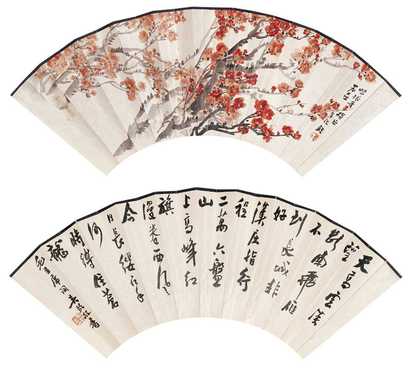 天高雲淡
望
斷南飛雁
不
到長城非
好
漢屈指行
程
二萬六盤
山
上高峰紅
旗
漫卷西風
今
日長纓在手
何
時縛住蒼
龍
毛主席詞